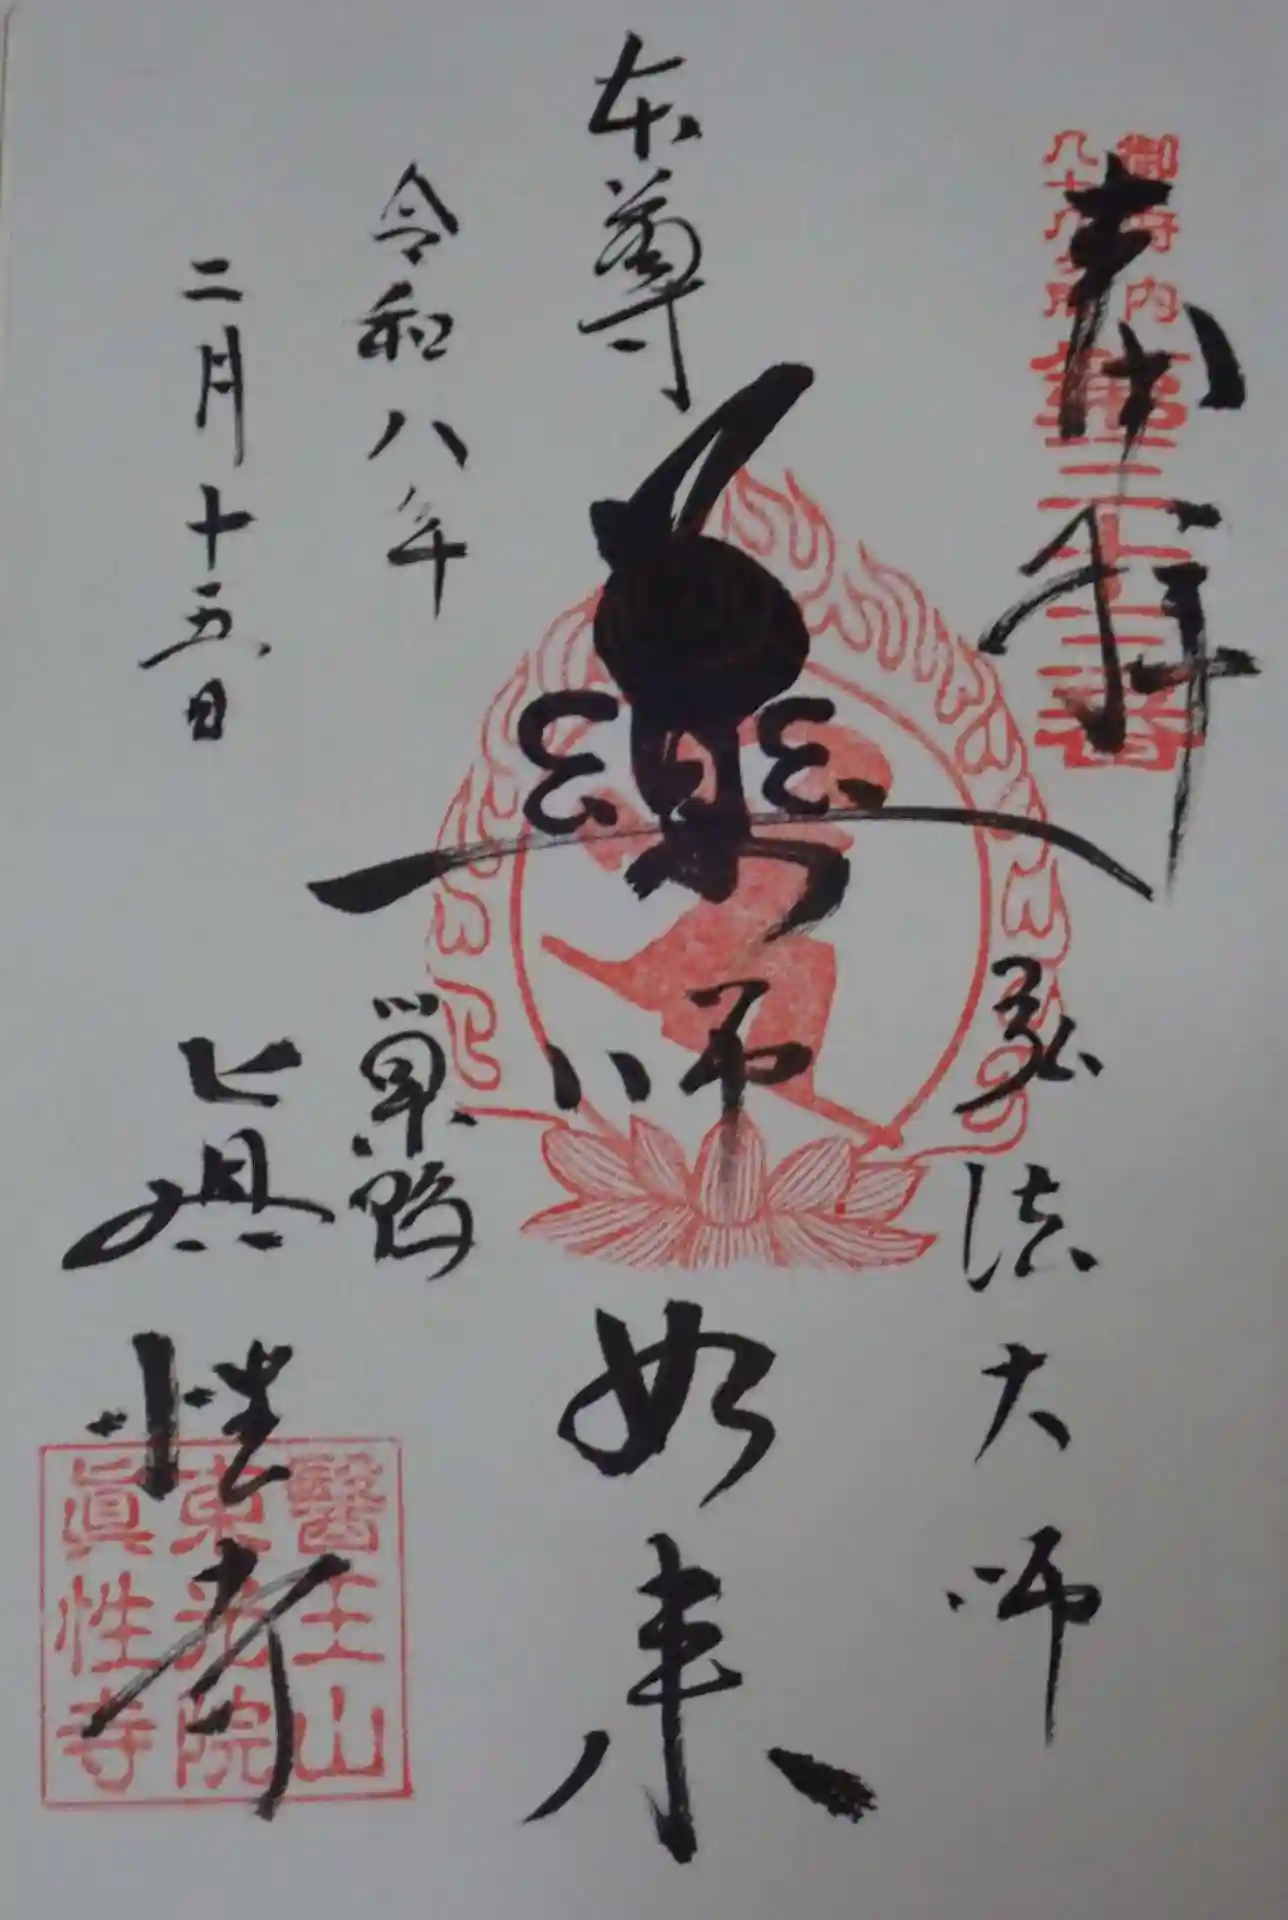 奉拝
御府内
八十八ヶ所
第三十三番
弘法大師
本尊
薬師如来
令和八年
巣鴨
二月十五日
眞性寺
醫王山
東光院
眞性寺